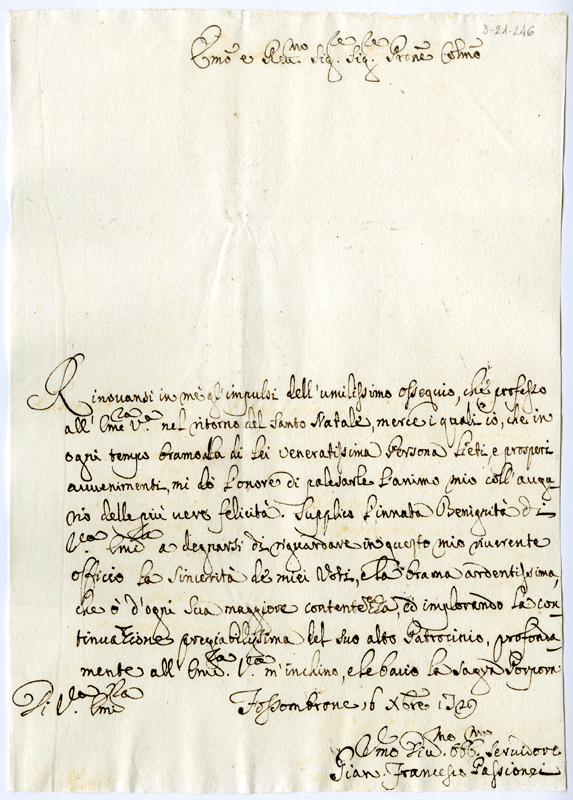 3-21-246
Emo e Revmo Sigre Sigre Prone Colmo
Rinovansi in me gl'impulsi dell'umilissimo ossequio, che professo
all' Emza Va nel ritorno del Santo Natale, mercè i quali io, che in
ogni tempo bramo alla di Lei veneratissima Persona lieti, e prosperi
avvenimenti, mi dò l'onore di palesarle l'animo mio coll'augu-
rio delle più vere felicità. Supplico l'innata Benignità di
Vra Emza a degnarsi di riguardare in questo mio riverente
officio la sincerità de miei Voti, e la brama ardentissima,
che ò d'ogni sua maggiore contentezza, ed implorando la con-
tinuazione pregiabilissima del suo alto Patrocinio, profonda-
mente all' Emza Vra m'inchino, e le bacio la Sagra Porpora
Di Vra Emza Fossombrone 16 Xbre 1729
Umo Divmo Obbmo Servidore
Gian Francesco Passionei